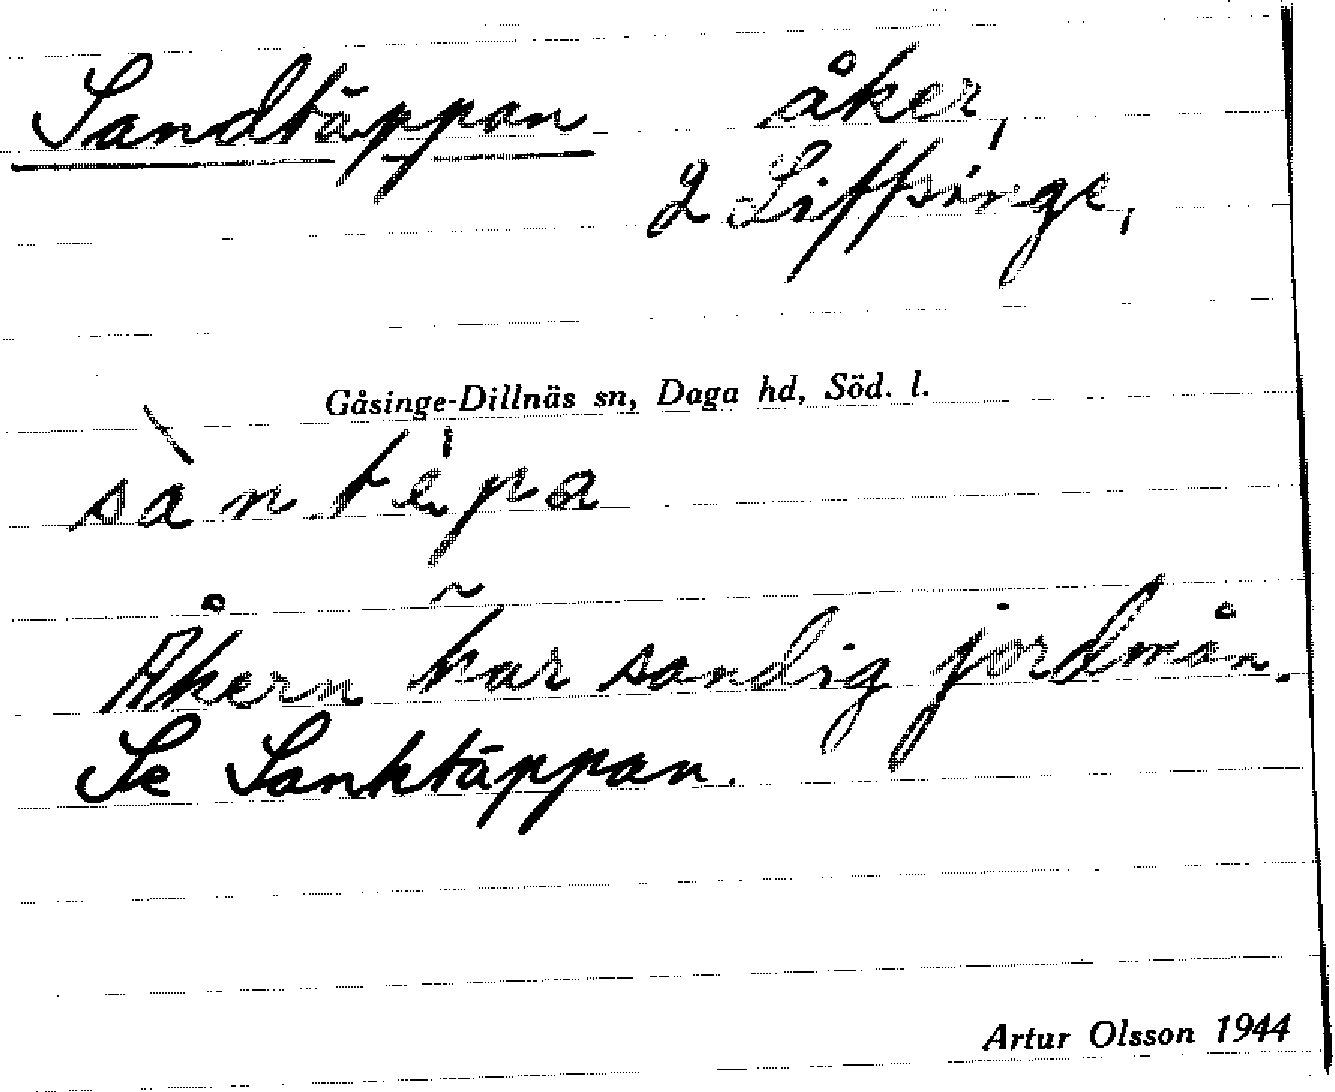 Sandtäppan åker,
2 Liffsinge,
Gåsinge-Dillnäs sn, Daga hd, Söd. l.
sàntépa
Åkern har sandig jordmån.
Se Sanktäppan.
Artur Olsson 1944